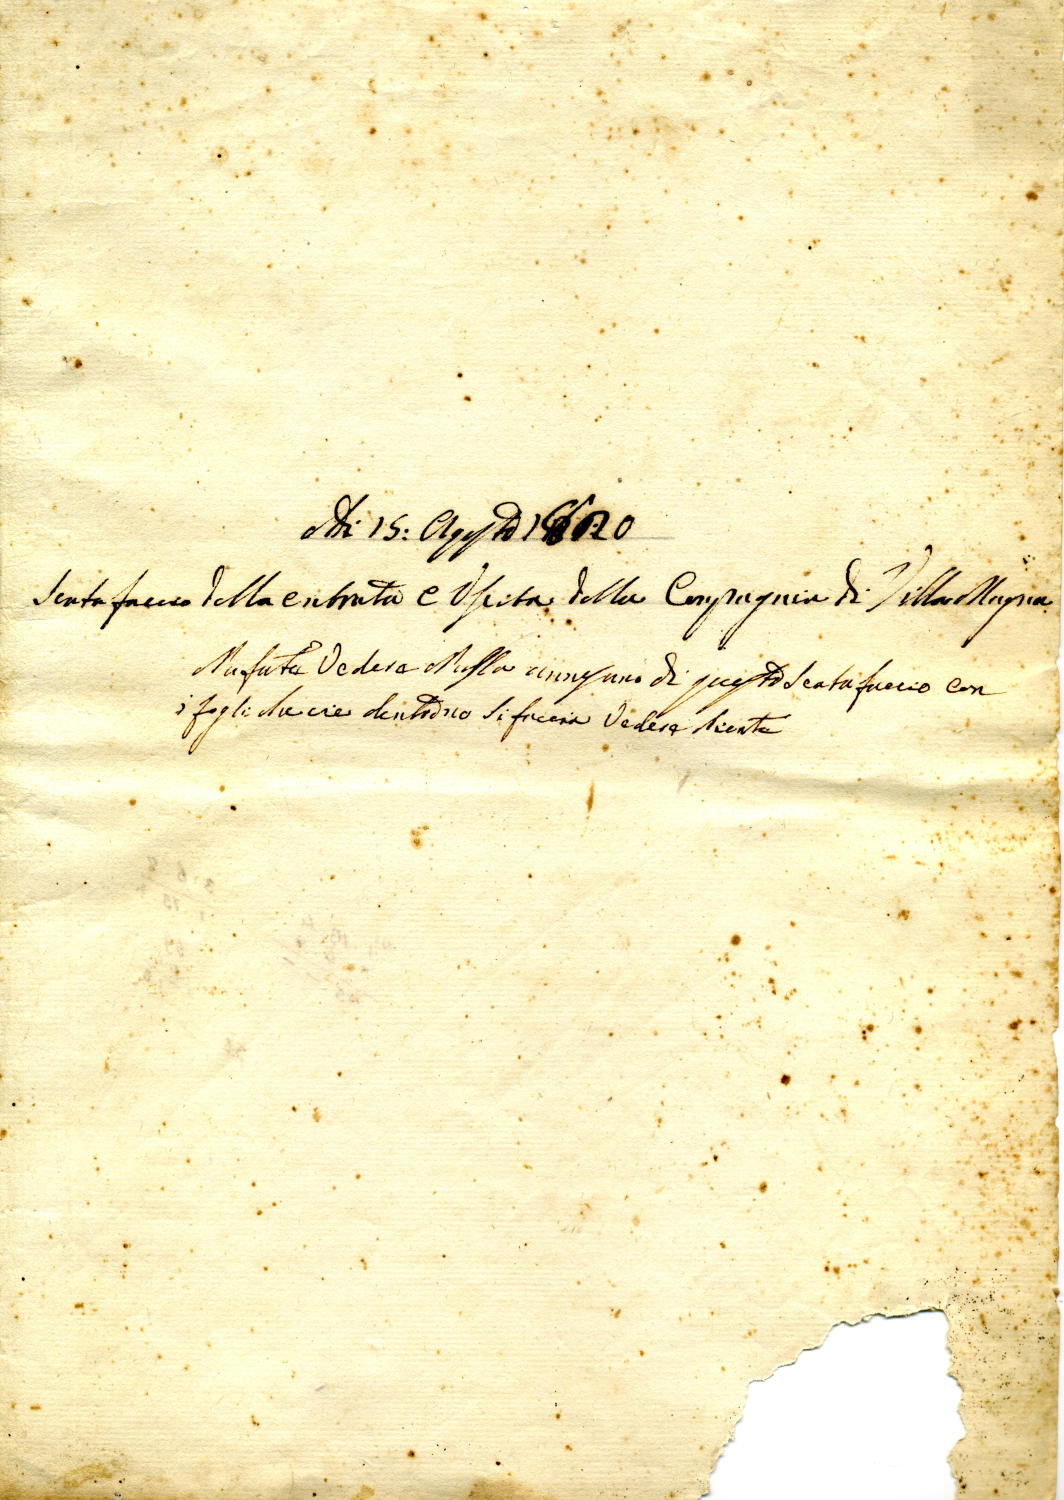 Adi 15: Agosto 1820
Scartafaccio della entrata e Uscita della Compagnia di Villa Magna
Na fate Vedere Nulla a nnsuno di questo Scartafaccio con
i fogli che cie dentorno Si faccia Vedere Niente